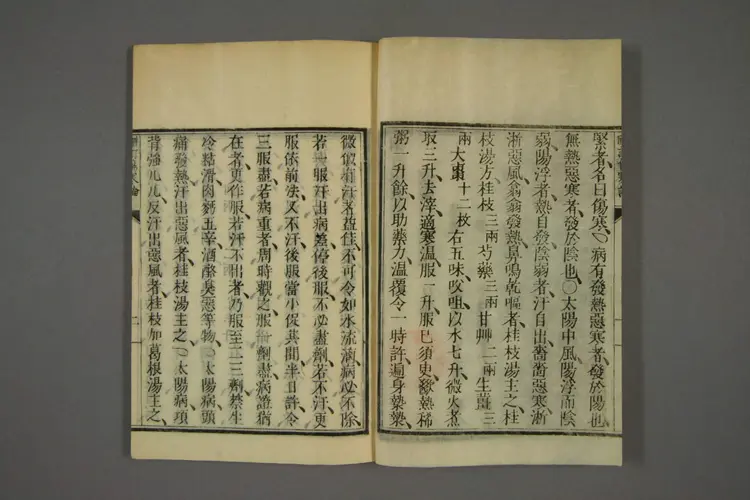 緊者名曰傷寒〇病有發熱惡寒者發於陽也
無熱惡寒者發於陰也〇太陽中風陽浮而陰
弱陽浮者熱自發陰弱者汗自出嗇嗇惡寒淅
淅惡風翕翕發熱鼻鳴乾嘔者桂枝湯主之桂
枝湯方桂枝三兩芍藥三兩甘艸二兩生薑三
兩大棗十二枚右五味㕮咀以水七升微火煮
取三升去滓適寒溫服一升服已須臾歠熱稀
粥一升餘以助藥力溫覆令一時許遍身漐漐
微似有汗者益佳不可令如水流漓病必不除
若一服汗出病差停後服不必盡劑若不汗更
服依前法又不汗後服當小促其間半日許令
三服盡若病重者周時觀之服一劑盡病證猶
在者更作服若汗不出者乃服至二三劑禁生
冷粘滑肉麪五辛酒酪臭惡等物〇太陽病頭
痛發熱汗出惡風者桂枝湯主之〇太陽病項
背強几几反汗出惡風者桂枝加葛根湯主之